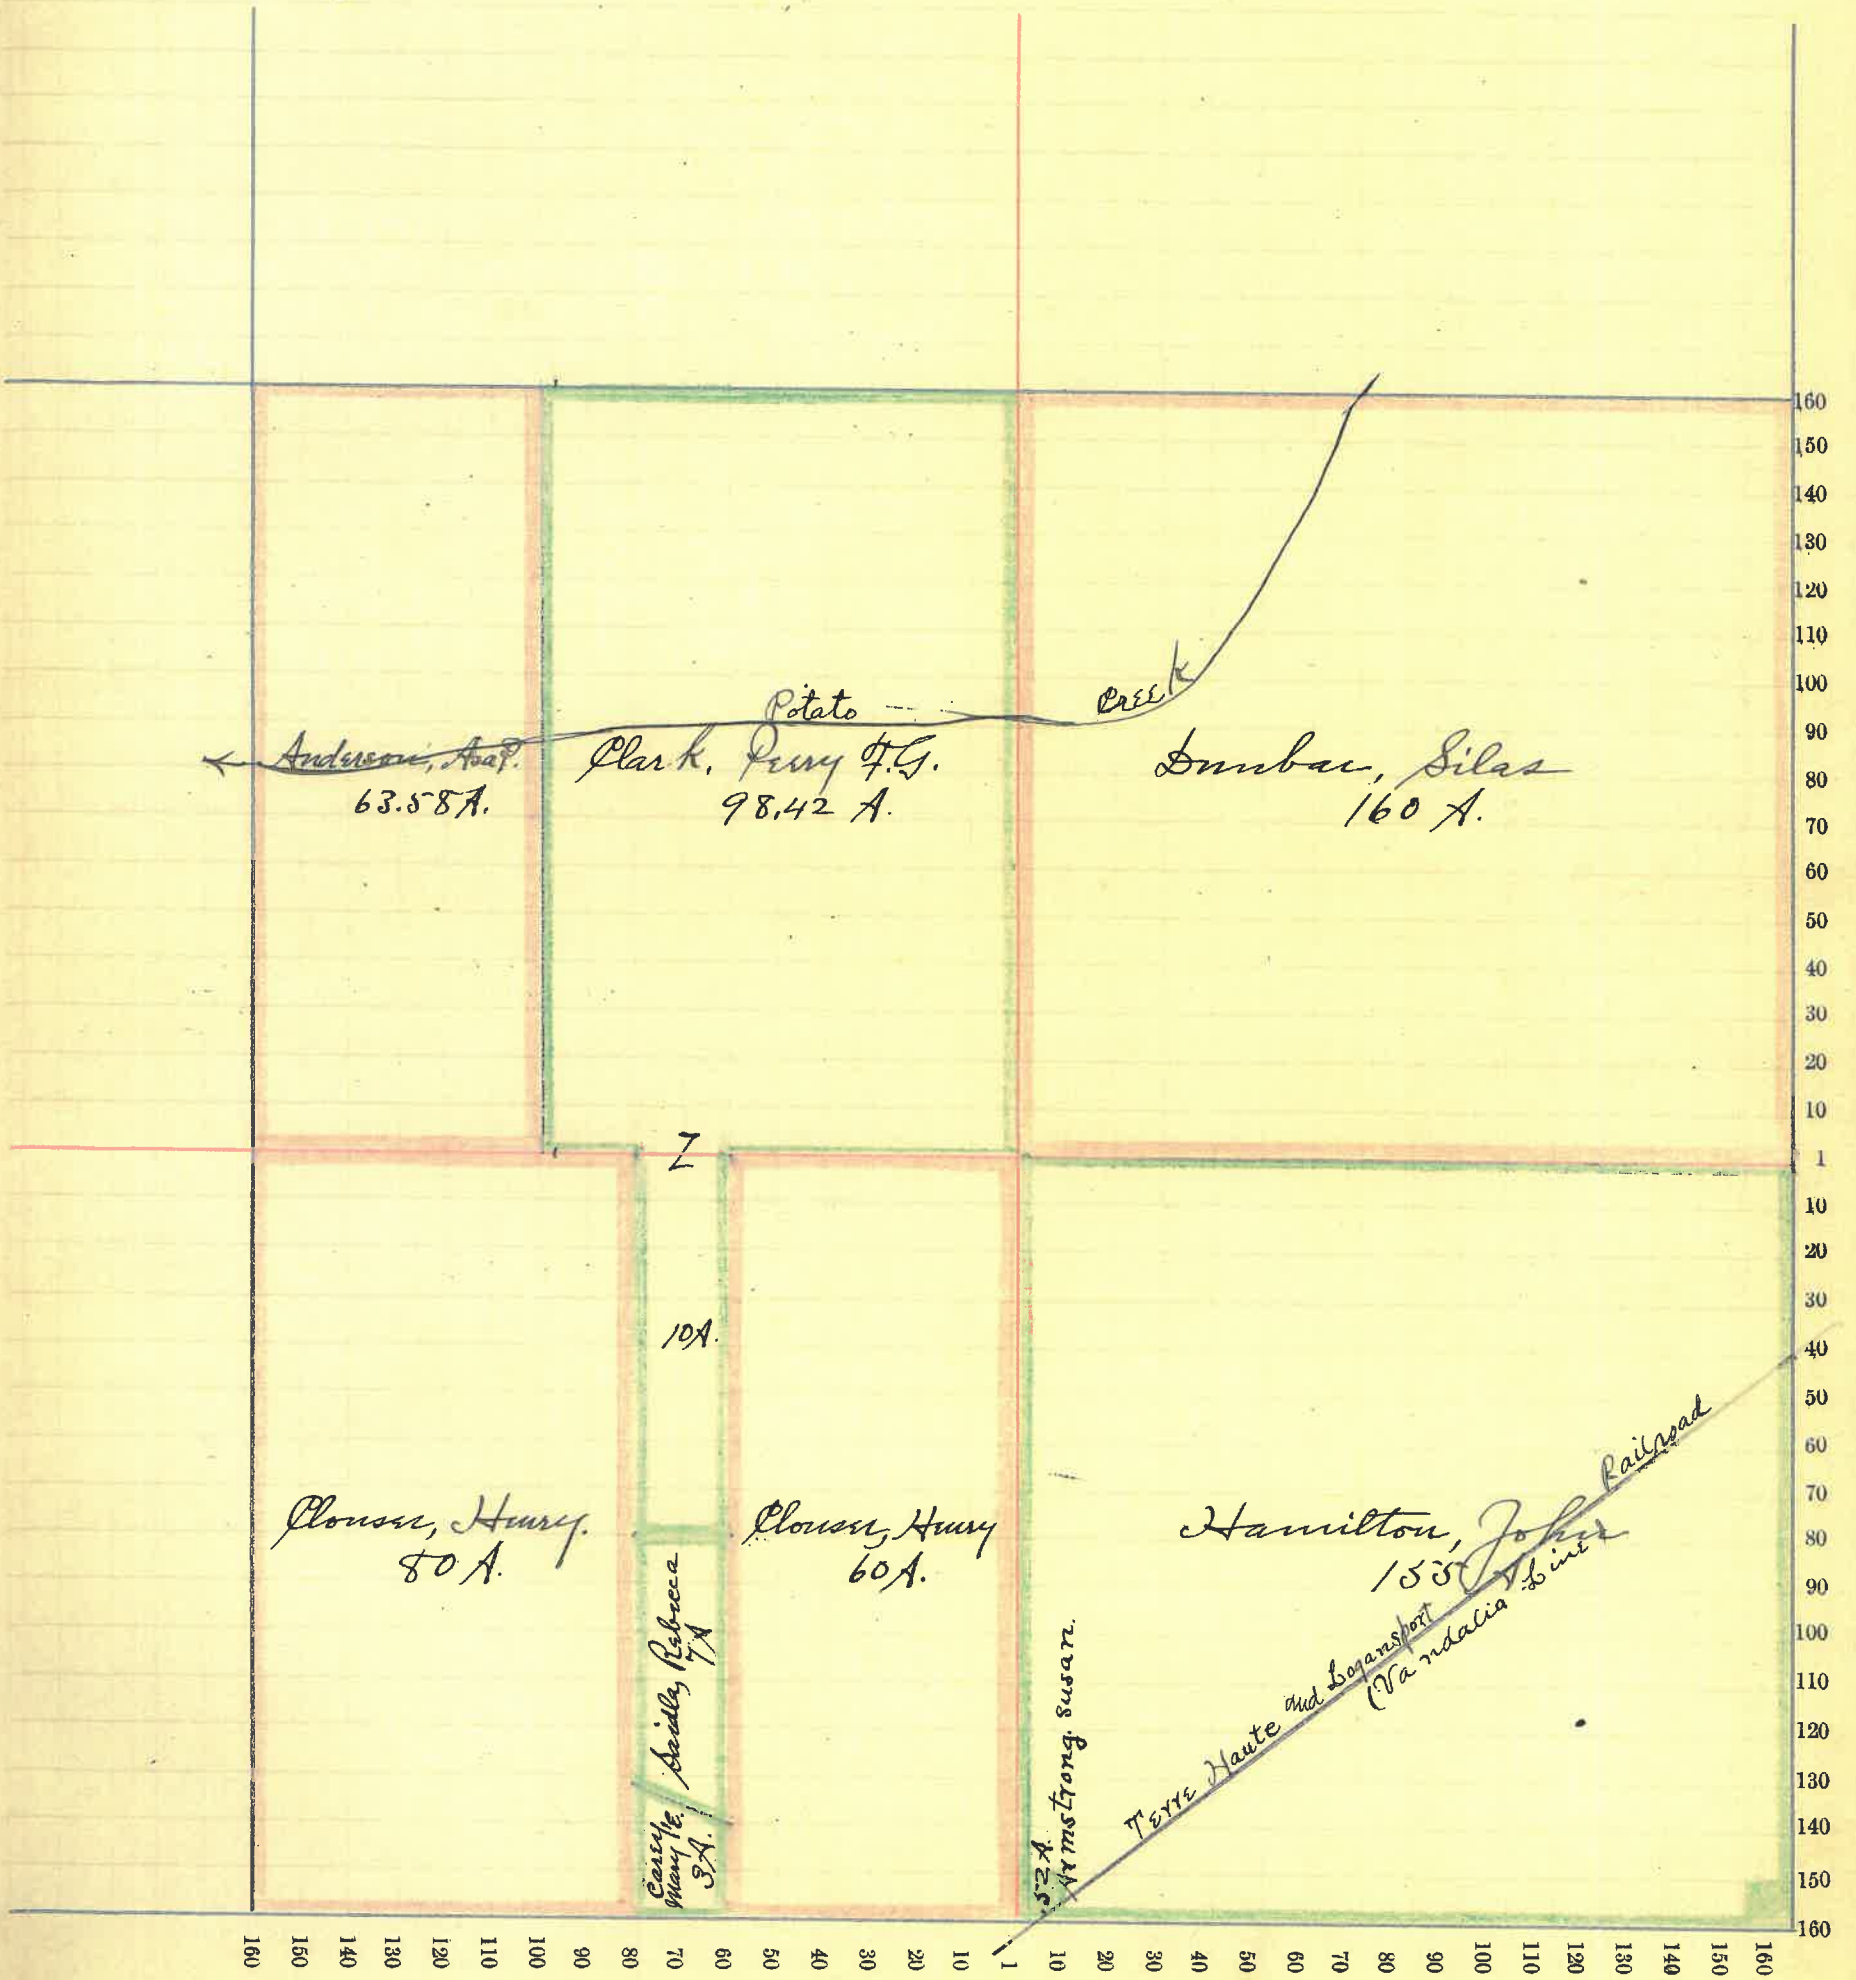 Potato
Creek
Anderson, Asa P.
63.58 A.
Clark, Perry F.G.
98.42 A.
Dunbar, Silas
160 A.
Z
10A.
Clouser, Henry.
80 A.
Rebecca
7A
Carey
Mary E.
3A.
Clouser, Henry
60 A.
Hamilton, John
155 A
Armstrong, Susan.
.52 A.
Terre Haute and Logansport Railroad
(Vandalia Line)
160
150
140
130
120
110
100
90
80
70
60
50
40
30
20
10
1
10
20
30
40
50
60
70
80
90
100
110
120
130
140
150
160
160
150
140
130
120
110
100
90
80
70
60
50
40
30
20
10
1
10
20
30
40
50
60
70
80
90
100
110
120
130
140
150
160